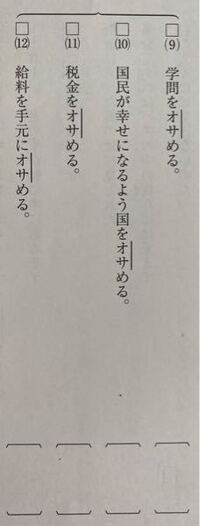 □(9) 学問をオサめる。
□(10) 国民が幸せになるよう国をオサめる。
□(11) 税金をオサめる。
□(12) 給料を手元にオサめる。